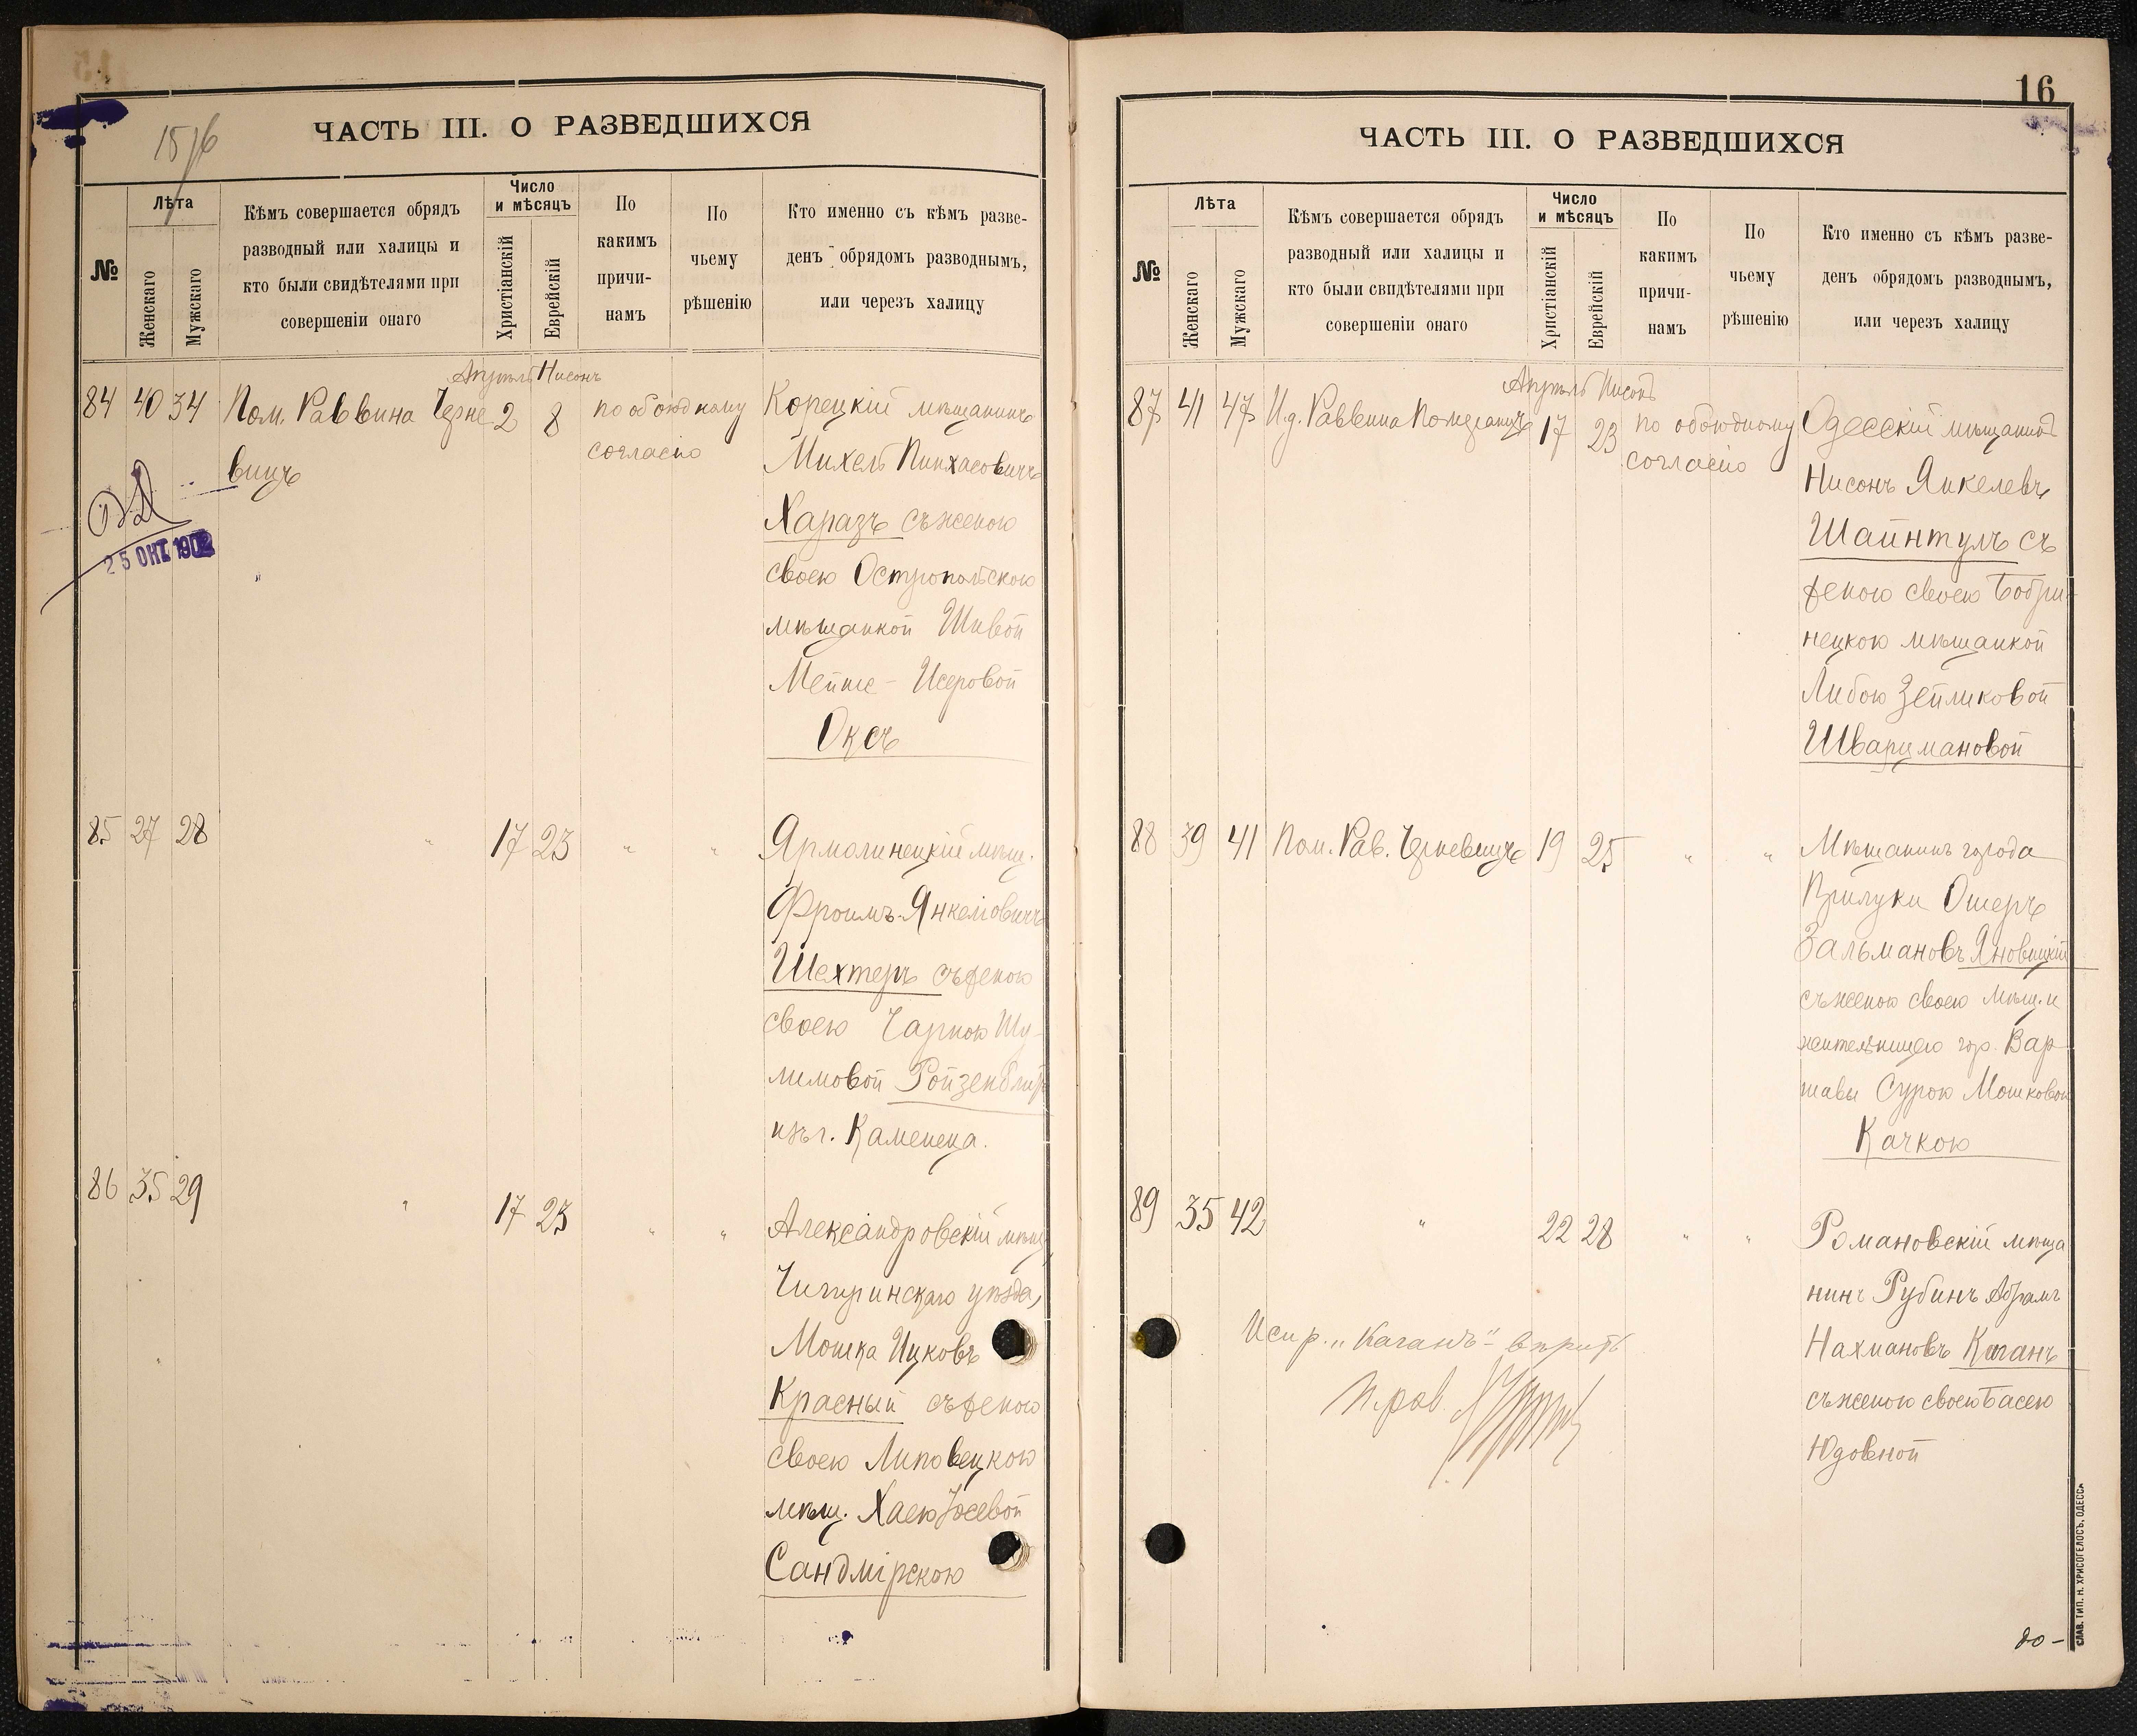 15/16
ЧАСТЬ III. О РАЗВЕДШИХСЯ
№
Лѣта
Женскаго
Мужскаго
Кѣмъ совершается обрядъ
разводный или халицы и
кто были свидѣтелями при
совершеніи онаго
Число
и мѣсяцъ
Христіанскій
Еврейскій
По
какимъ
причи-
намъ
По
чьему
рѣшенію
Кто именно съ кѣмъ разве-
денъ обрядомъ разводнымъ,
или черезъ халицу
Апрѣль Нисонъ
84 40 34 Пом. Раввина Черне 2 8 по обоюдному
вицъ
согласію
Корецкій мѣщанинъ
Михель Пинхасовичъ
Харазъ съ женою
своею Остропольскою
мѣщанкой Шивой
Мейше-Исеровой
Оксъ
25 ОКТ. 1902
85 27 28 " 17 23 " "
Ярмолинецкій мѣщ.
Фроимъ-Янкелювичъ
Шехтеръ съ женою
своею Чарною Шу-
лимовой Ройзенблит
изъ г. Каменца.
86 35 29 " 17 23 " "
Александровскій мѣщ.
Чигиринскаго уѣзда,
Мошка Ицковъ
Красный съ женою
своею Липовецкою
мѣщ. Хаею Іосевой
Сандмірскою
16
ЧАСТЬ III. О РАЗВЕДШИХСЯ
№
Лѣта
Женскаго
Мужскаго
Кѣмъ совершается обрядъ
разводный или халицы и
кто были свидѣтелями при
совершеніи онаго
Число
и мѣсяцъ
Христіанскій
Еврейскій
По
какимъ
причи-
намъ
По
чьему
рѣшенію
Кто именно съ кѣмъ разве-
денъ обрядомъ разводнымъ,
или черезъ халицу
Апрѣль Нисонъ
87 41 47 И.д. Раввина Померанцъ 17 23 по обоюдному
согласію
Одесскій мѣщанинъ
Нисонъ Янкелевъ
Шайнтулъ съ
женою своею Бобри-
нецкою мѣщанкой
Либою Зейликовой
Шварцмановой
88 39 41 Пом. Рав. Черневицъ 19 25 " "
Мѣщанинъ города
Прилуки Ошеръ
Зальмановъ Яновицкій
съ женою своею мѣщ. и
жительницею гор. Вар
шавы Сурою Мошковой
Качкою
89 35 42 " 22 28 " "
Романовскій мѣща
нинъ Рубинъ Абрамъ
Нахмановъ Каганъ
съ женою своею Басею
Юдовной
Испр. "Каганъ" - вѣрить
СЛАВ. ТИП. Н. ХРИСОГЕЛОСЪ, ОДЕССА